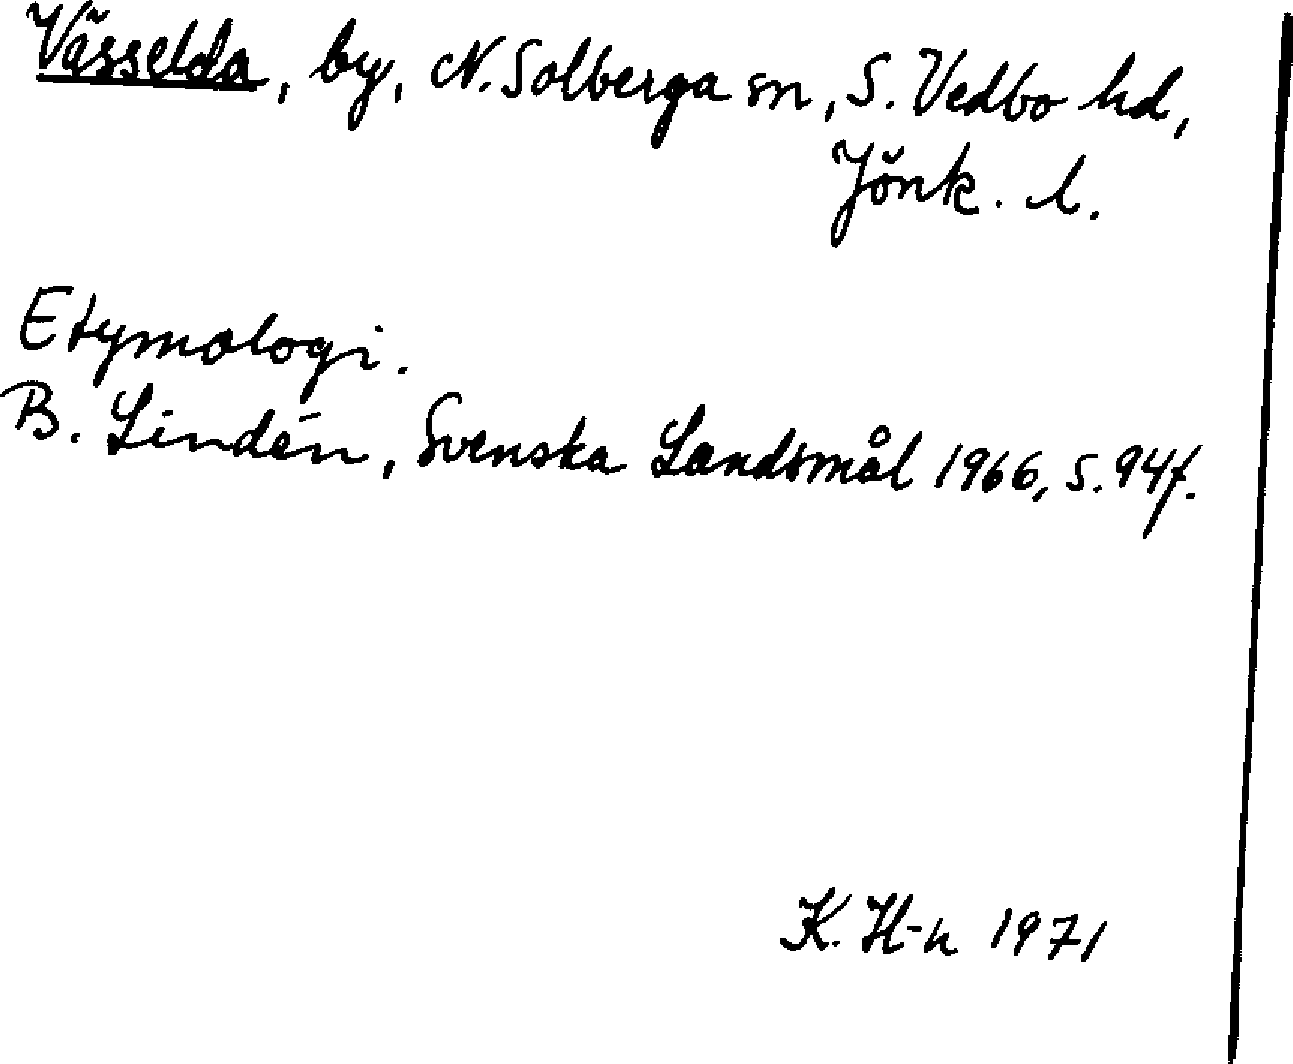 Vässelda, by, N. Solberga sn, S. Vedbo hd,
Jönk. l.
Etymologi.
B. Lindén, Svenska Landsmål 1966, s. 94f.
K. H-n 1971